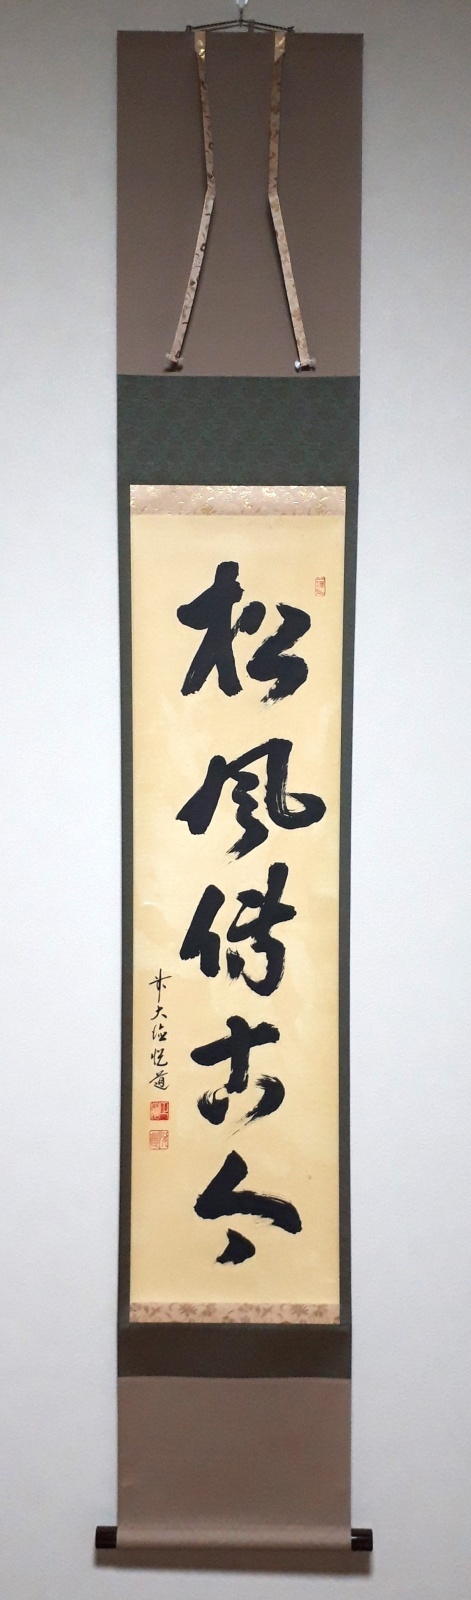 松風傳古今
大徳悦道